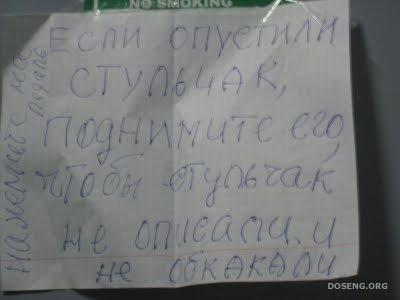 NO SMOKING
Если опустили
стульчак,
поднимите его,
чтобы стульчак
не описали и
не обкакали
нажмите на
педаль
DOSENG.ORG